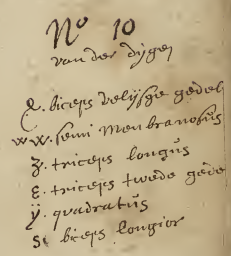 No 10
van der dÿgen
&. biceps velÿsge gedel
ww. semi membranosus
z. triceps longus
ε. triceps twede gede
ÿ. quadratus
s. biceps longior